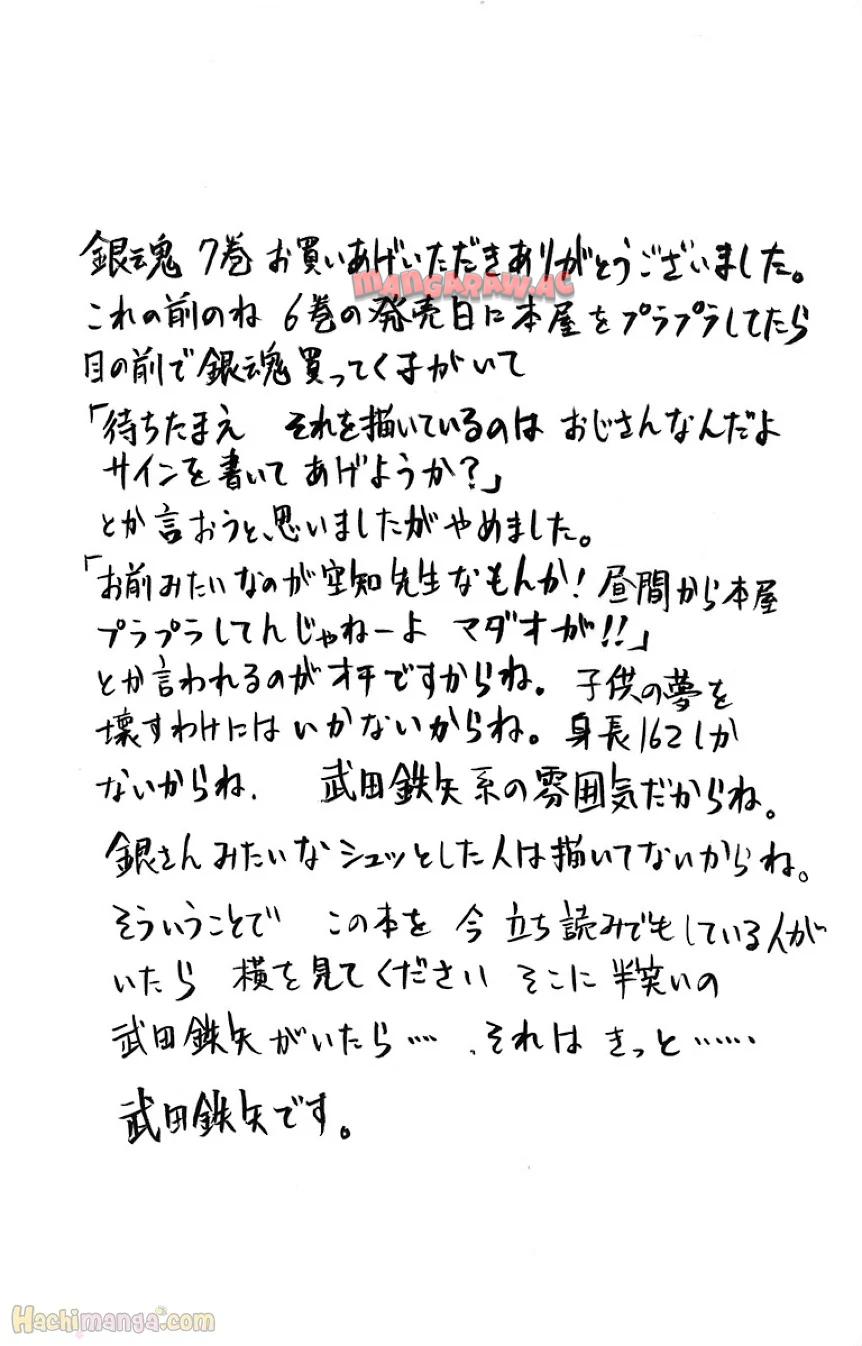 MANGARAW.AC
銀魂 7巻 お買いあげいただきありがとうございました。
これの前のね 6巻の発売日に本屋をプラプラしてたら
目の前で銀魂買ってく子がいて
「待ちたまえ それを描いているのは おじさんなんだよ
サインを書いて あげようか?」
とか言おうと、思いましたがやめました。
「お前みたいなのが空知先生なもんか! 昼間から本屋
プラプラしてんじゃねーよ マダオが!!」
とか言われるのがオチですからね。子供の夢を
壊すわけにはいかないからね。身長162しか
ないからね. 武田鉄矢系の雰囲気だからね。
銀さんみたいなシュッとした人は描いてないからね。
そういうことで この本を 今 立ち読みでもしている人が
いたら 横を見てください そこに 半笑いの
武田鉄矢がいたら…. それは きっと……
武田鉄矢です。
Hachimanga.com